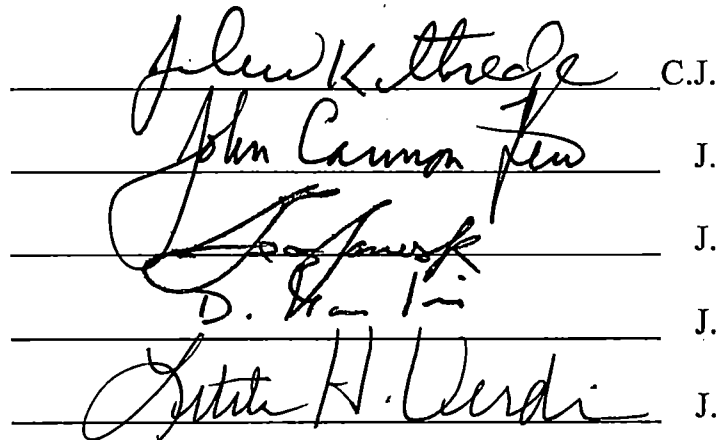 John W. Kittredge C.J.
John Cannon Few J.
J.
D. J.
Letitia H. Verdin J.